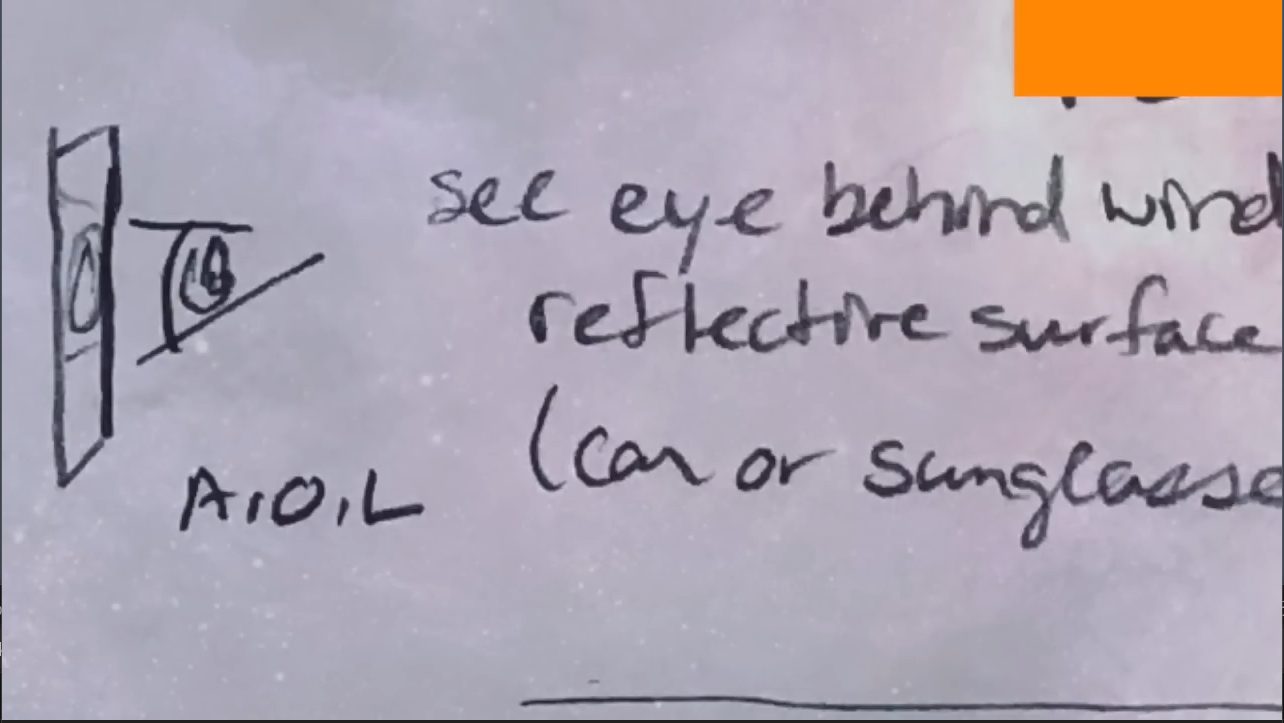 see eye behind wind
reflective surface
(car or sunglasse
A.O.L